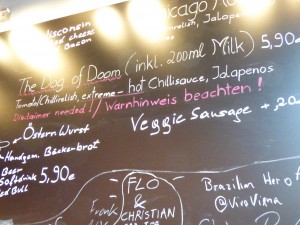 Wisconsin
cheese
Bacon
Chicago
relish, Jalape
The Dog of Doom (inkl. 200ml Milk) 5,90€
Tomato/Chillirelish, extreme-hot Chillisauce, Jalapenos
Disclaimer needed!/Warnhinweis beachten!
Veggie Sausage +,20
Östern Wurst
Handgem. Bäcker-brot
Beer
Softdrink 5,90€
Red Bull
FLO
&
CHRISTIAN
Frank
Brazilian Hero
@ViroViana